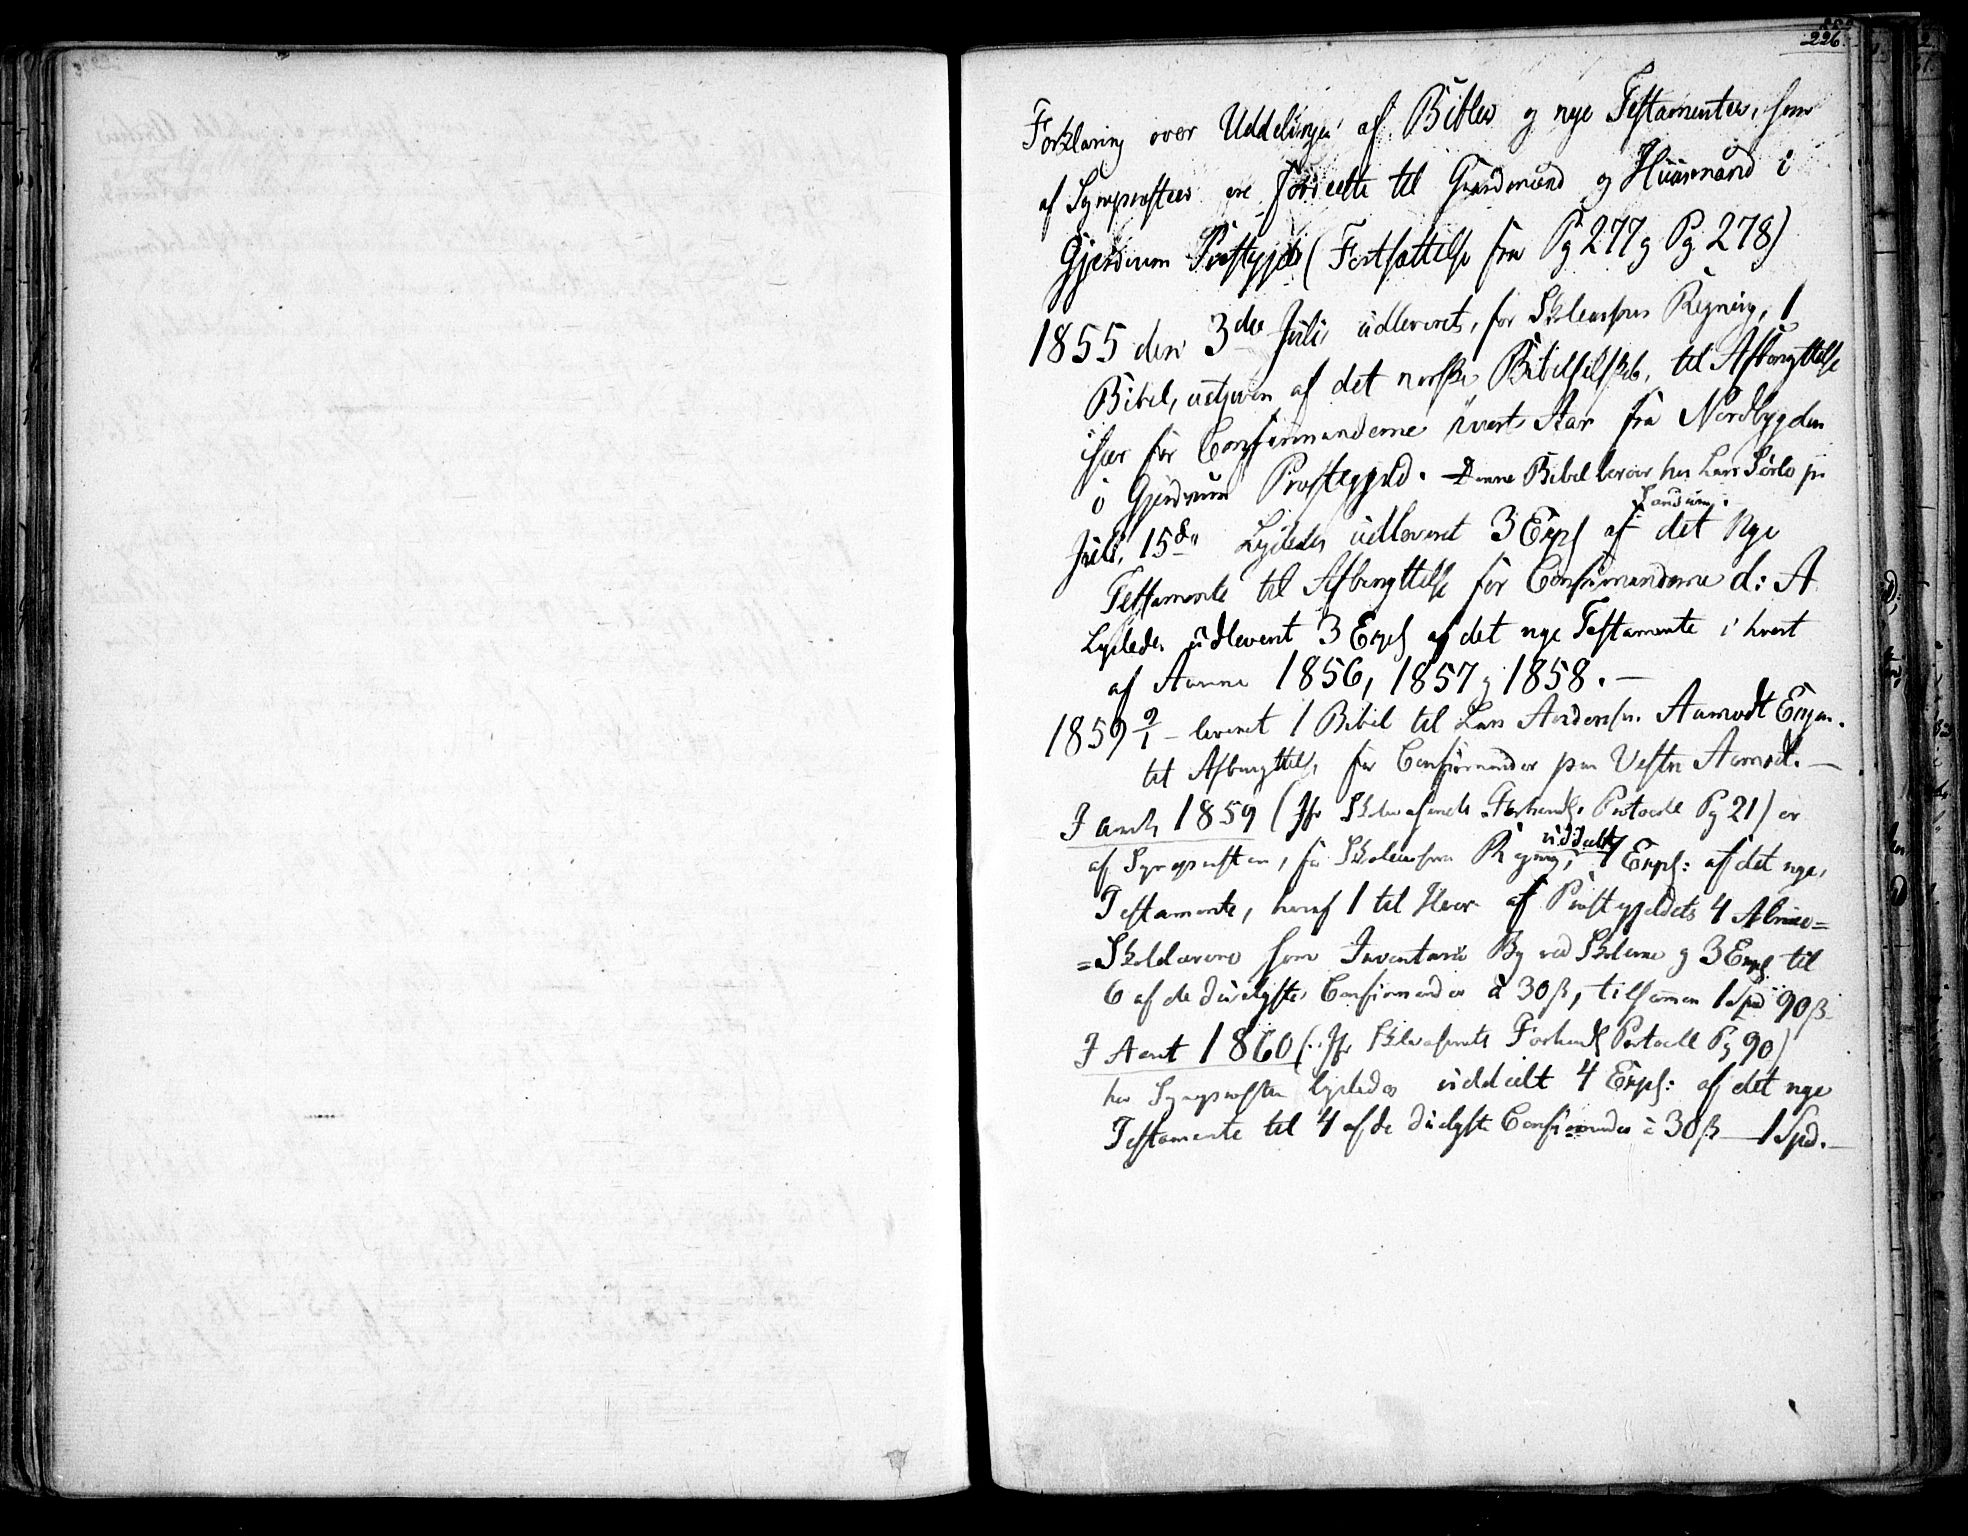 226.
Forklaring over Uddelingen af Bibler og nye Testamenter, som
af Sognepræsten ere til Gaardmænd og Huusmænd i
Gjerdrum Præstegjeld (Fortsættelse fra Pg 277 og Pg 278)
1855 den 3die Juli udleveret, for Skolecassens Regning, 1
Bibel, udgiven af det norske Bibelselskab, til Afbenyttelse
især for Confirmanderne hvert Aar fra Nordbygden
i Gjerdrum Præstegjeld. Denne Bibel beroer hos Lars
Juli, 15de Ligeledes udleveret 3 Expl af det Nye
Testamente til Afbenyttelse for Confirmanderne d: A
Ligeledes udleveret 3 Expl af det nye Testamente i hvert
af Aarene 1856, 1857 og 1858. —
1859 9/1 – leveret 1 Bibel til Lars Anderss. Aamodt Eyer.
til Afbenyttelse for Confirmander paa Vestre Aamodt. —
I Aaret 1859 (Jfr Skolecassens Forhandl. Protocoll Pg 21) er
af Sognepræsten, for Skolecassens Regning, uddeelt 7 Expl: af det nye,
Testamente, heraf 1 til Hver af Præstegjeldets 4 Almue=
=Skolelærere som Inventarium ved Skolerne og 3 Expl til
6 af de dueligste Confirmander à 30 ß, tilsammen 1 Spd 90 ß
I Aaret 1860 (Jfr Skolecassens Forhandl Protocoll Pg 90)
har Sognepræsten ligeledes uddeelt 4 Expl: af det nye
Testamente til 4 af de dueligste Confirmander à 30 ß — 1 Spd. —